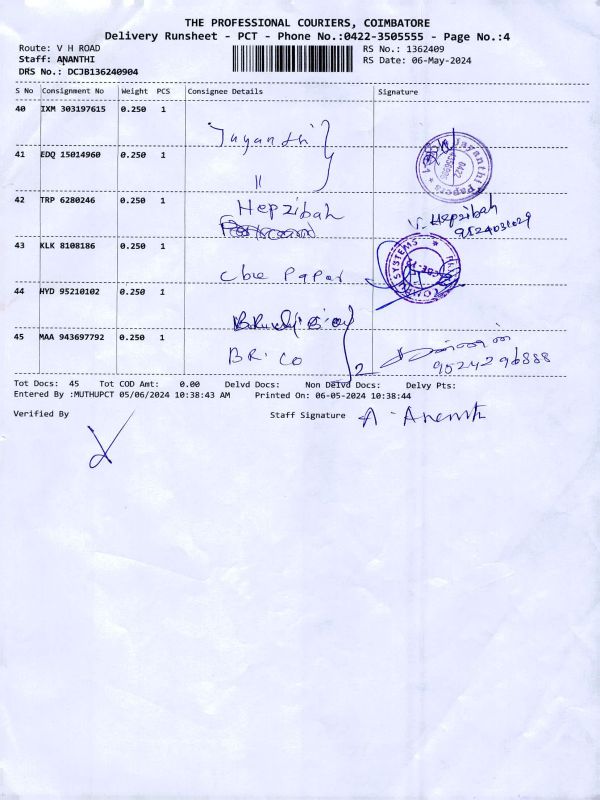 THE PROFESSIONAL COURIERS, COIMBATORE
Delivery Runsheet - PCT - Phone No.:0422-3505555 - Page No.:4
Route: V H ROAD
RS No.: 1362409
Staff: ANANTHI
RS Date: 06-May-2024
DRS No.: DCJB136240904
S No Consignment No Weight PCS Consignee Details Signature
40 IXM 303197615 0.250 1
Jayanthi
41 EDQ 15014960 0.250 1
"
Jayanthi Papers
0422
42 TRP 6280246 0.250 1 Hepzibah
V. Hepzibah
43 KLK 8108186 0.250 1
SYSTEMS
Cbe Paper
44 HYD 95210102 0.250 1
45 MAA 943697792 0.250 1
BRICO
2
9024296888
Tot Docs: 45 Tot COD Amt: 0.00 Delvd Docs: Non Delvd Docs: Delvy Pts:
Entered By :MUTHUPCT 05/06/2024 10:38:43 AM Printed On: 06-05-2024 10:38:44
Verified By Staff Signature A. Ananth